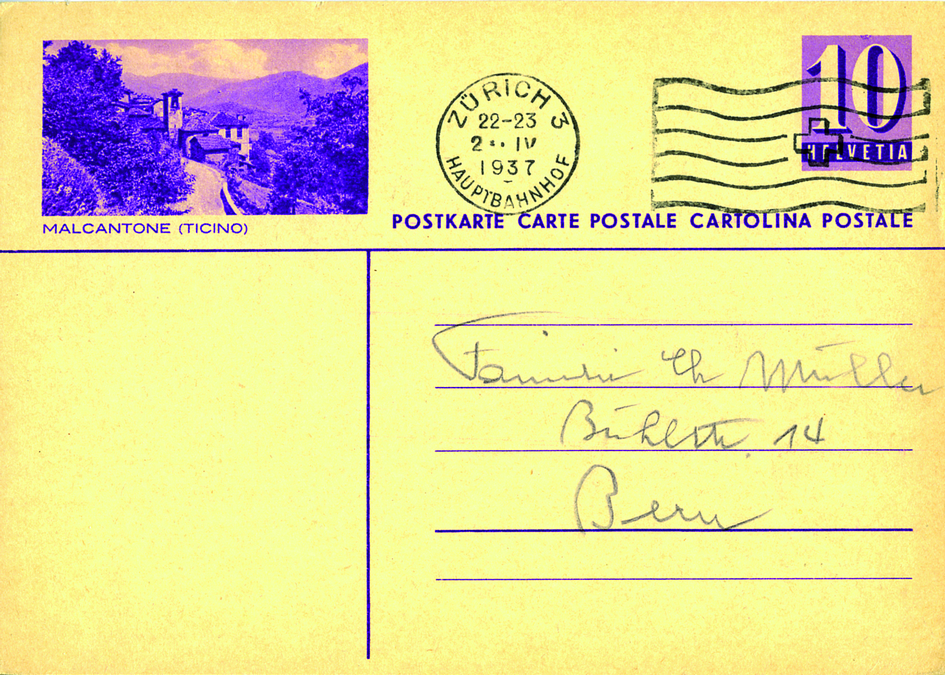 MALCANTONE (TICINO)
ZÜRICH 3
22-23
IV
1937
HAUPTBAHNHOF
10
HELVETIA
POSTKARTE CARTE POSTALE CARTOLINA POSTALE
Familie Ch Müller
Bühlstr. 14
Bern